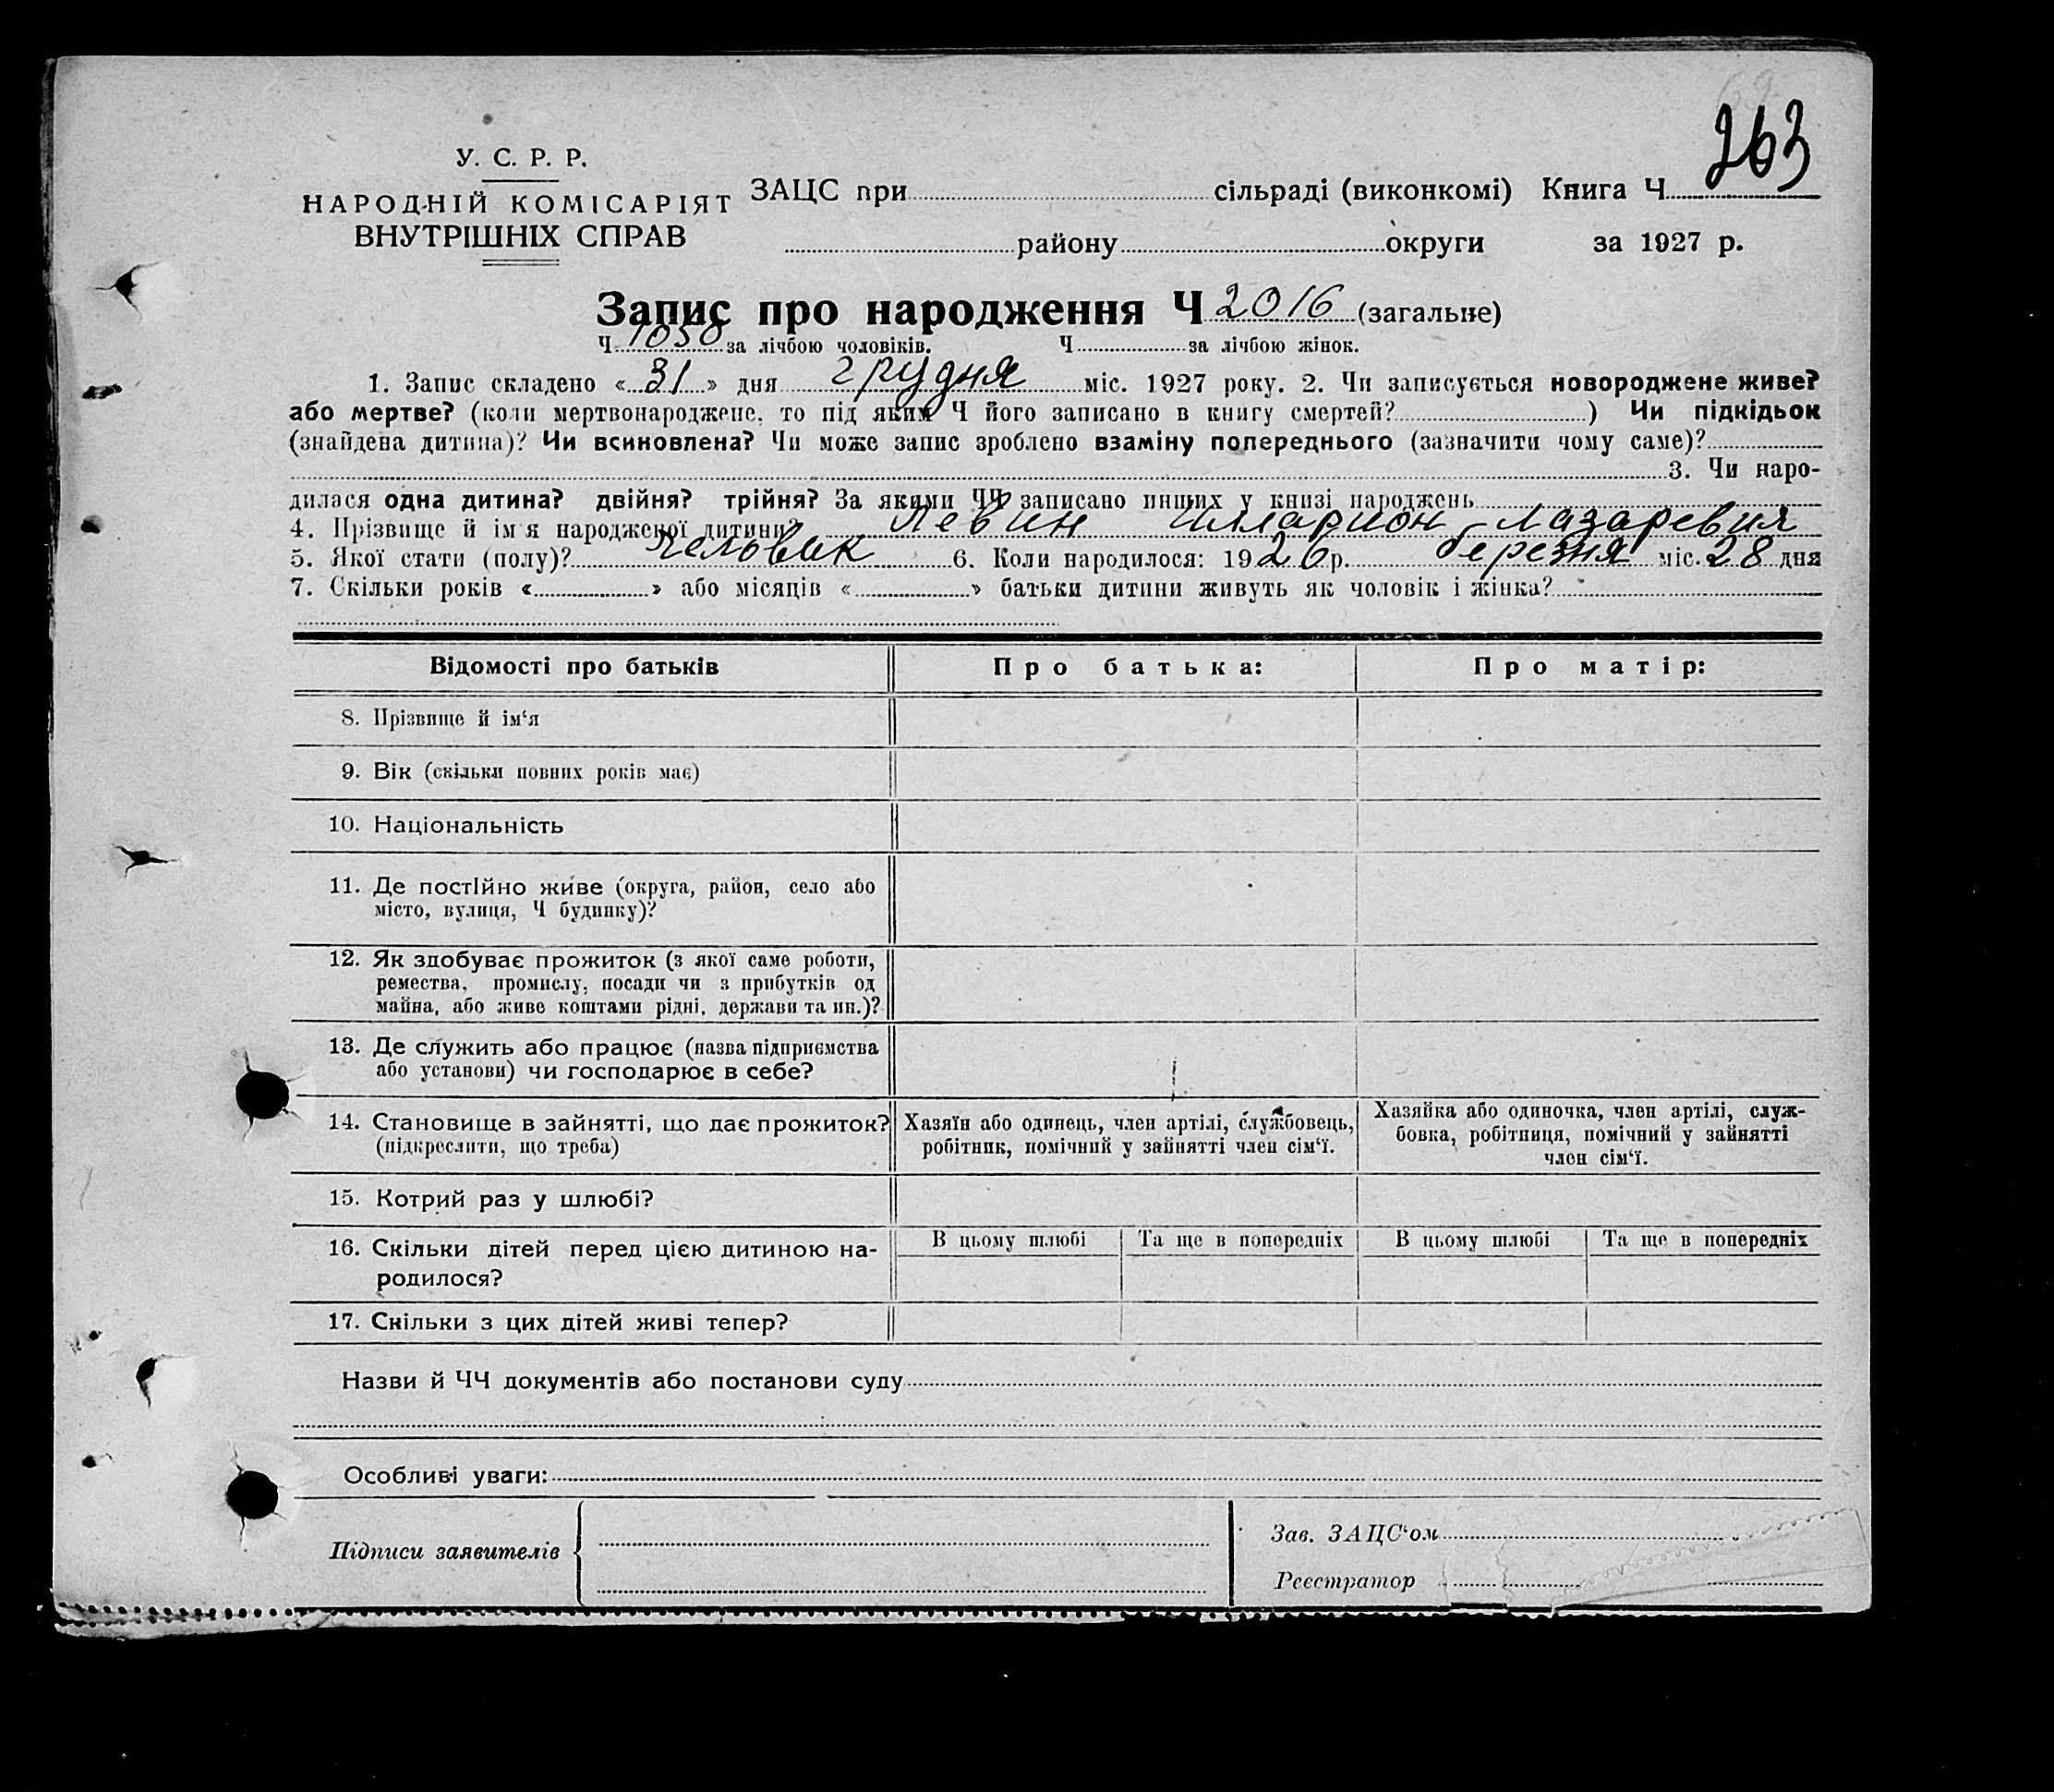 263
У. С. Р. Р.
НАРОДНІЙ КОМІСАРІЯТ
ВНУТРІШНІХ СПРАВ
ЗАЦС при сільраді (виконкомі) Книга Ч
району округи за 1927 р.
Запис про народження Ч 2016 (загальне)
Ч 1050 за лічбою чоловіків. Ч за лічбою жінок.
1. Запис складено « 31 » дня грудня міс. 1927 року. 2. Чи записується новороджене живе?
або мертве? (коли мертвонароджене, то під яким Ч його записано в книгу смертей? ) Чи підкідьок
(знайдена дитина)? Чи всиновлена? Чи може запис зроблено взаміну попереднього (зазначити чому саме)?
3. Чи наро-
дилася одна дитина? двійня? трійня? За якими ЧЧ записано инших у книзі народжень
4. Прізвище й ім'я народженої дитини? Левин Илларион Лазаревич
5. Якої стати (полу)? человик 6. Коли народилося: 1926 р. березня міс. 28 дня
7. Скільки років « » або місяців « » батьки дитини живуть як чоловік і жінка?
Відомості про батьків Про батька: Про матір:
8. Прізвище й ім'я
9. Вік (скільки повних років має)
10. Національність
11. Де постійно живе (округа, район, село або
місто, вулиця, Ч будинку)?
12. Як здобуває прожиток (з якої саме роботи,
ремества, промислу, посади чи з прибутків од
майна, або живе коштами рідні, держави та ин.)?
13. Де служить або працює (назва підприємства
або установи) чи господарює в себе?
14. Становище в зайнятті, що дає прожиток?
(підкреслити, що треба)
Хазяїн або одинець, член артілі, службовець,
робітник, помічний у зайнятті член сім'ї.
Хазяйка або одиночка, член артілі, служ-
бовка, робітниця, помічний у зайнятті
член сім'ї.
15. Котрий раз у шлюбі?
16. Скільки дітей перед цією дитиною на-
родилося?
В цьому шлюбі Та ще в попередніх В цьому шлюбі Та ще в попередніх
17. Скільки з цих дітей живі тепер?
Назви й ЧЧ документів або постанови суду
Особливі уваги:
Підписи заявителів
Зав. ЗАЦС'ом
Реєстратор